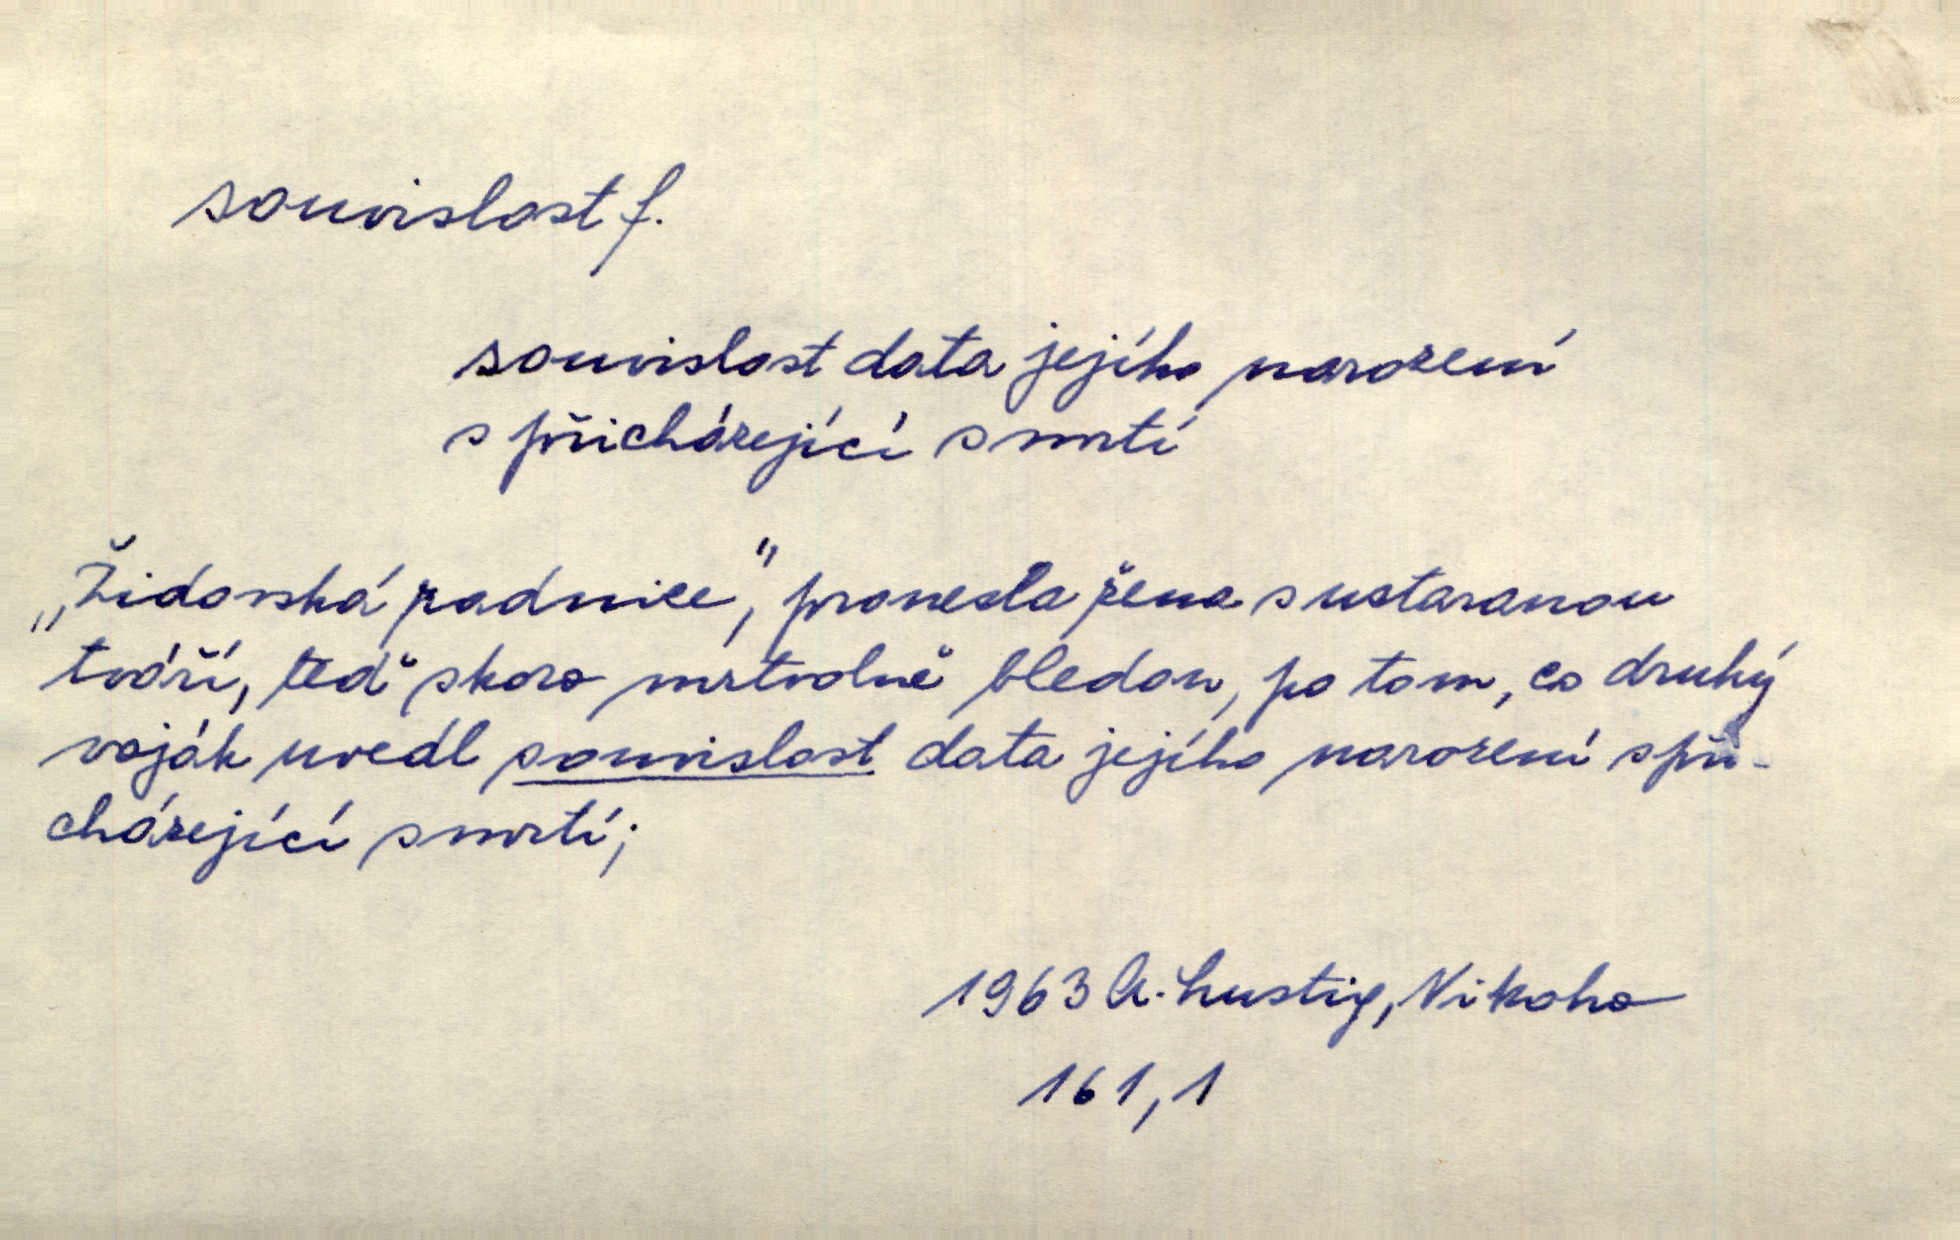 souvislost f.
souvislost data jejího narození
s přicházející smrtí
„Židovská radnice“, pronesla žena s ustaranou
tváří, teď skoro mrtvolně bledou, po tom, co druhý
voják uvedl souvislost data jejího narození s při-
cházející smrtí;
1963 A. Lustig, Nikoho
161,1